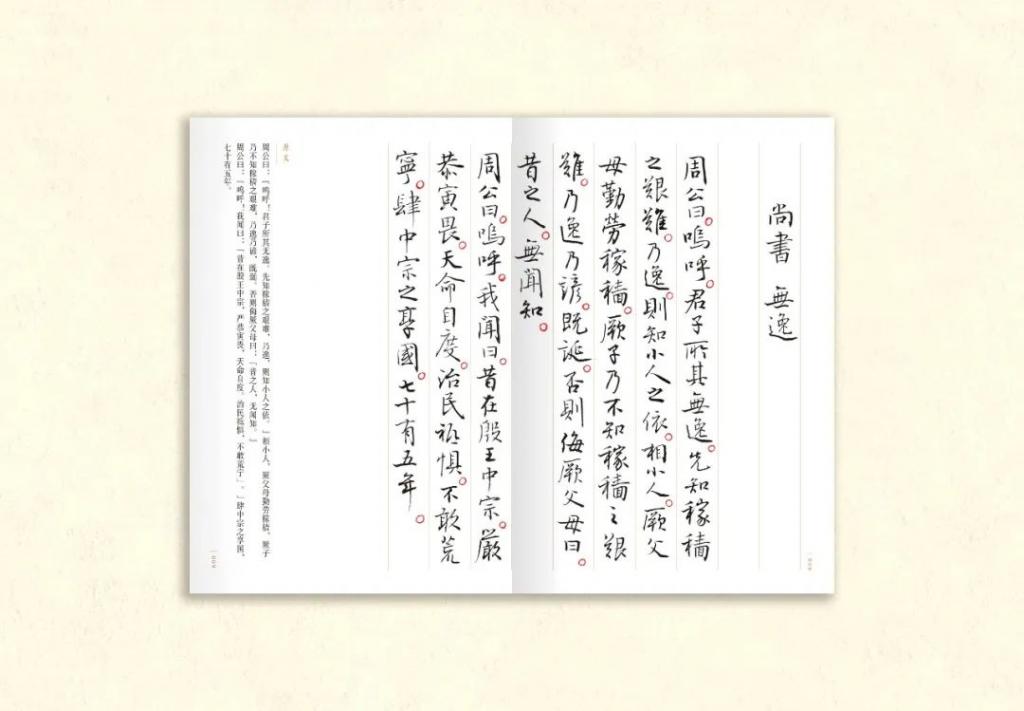 尚書 無逸
周公曰。嗚呼。君子所其無逸。先知稼穡
之艱難。乃逸。則知小人之依。相小人。厥父
母勤勞稼穡。厥子乃不知稼穡之艱
難。乃逸乃諺。既誕。否則侮厥父母曰。
昔之人。無聞知。
周公曰。嗚呼。我聞曰。昔在殷王中宗。嚴
恭寅畏。天命自度。治民祗懼。不敢荒
寧。肆中宗之享國。七十有五年。
原文
周公曰：「呜呼！君子所其无逸。先知稼穑之艰难，乃逸，则知小人之依。」相小人，厥父母勤劳稼穑，厥子
乃不知稼穑之艰难，乃逸乃谚。既诞，否则侮厥父母曰：「昔之人，无闻知。」
周公曰：「呜呼！我闻曰：「昔在殷王中宗，严恭寅畏，天命自度，治民祗惧，不敢荒宁」。」肆中宗之享国，
七十有五年。
009